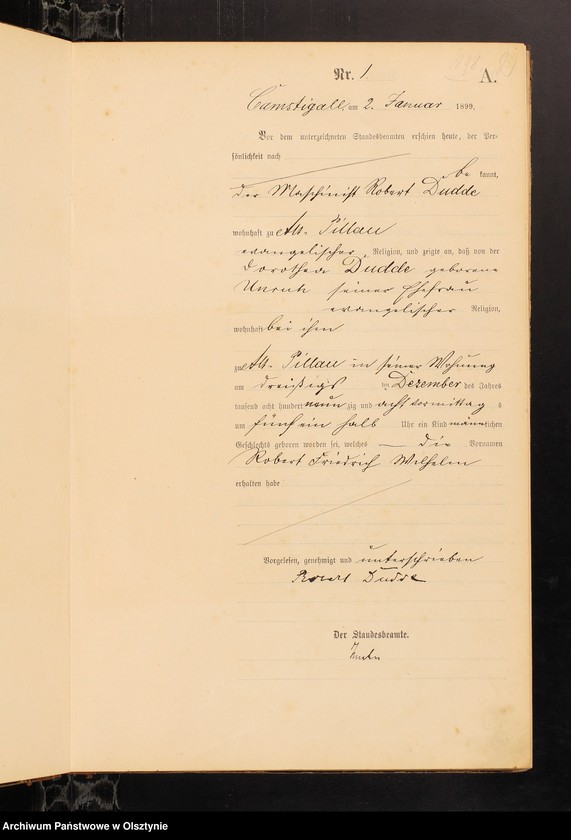 Nr. 1
A.
Camstigall, am 2. Januar 1899.
Vor dem unterzeichneten Standesbeamten erschien heute, der Per-
sönlichkeit nach
be kannt,
der Maschinist Robert Dudde
wohnhaft zu Alt-Pillau
evangelischer Religion, und zeigte an, daß von der
Dorothea Dudde geborene
Unruh seiner Ehefrau
evangelischer Religion,
wohnhaft bei ihm
zu Alt-Pillau in seiner Wohnung
am dreißigs ten Dezember des Jahres
tausend acht hundert neun zig und acht vormittag s
um fünf ein halb Uhr ein Kind männlichen
Geschlechts geboren worden sei, welches die Vornamen
Robert Friedrich Wilhelm
erhalten habe
Vorgelesen, genehmigt und unterschrieben
Robert Dudde
Der Standesbeamte.
Archiwum Państwowe w Olsztynie